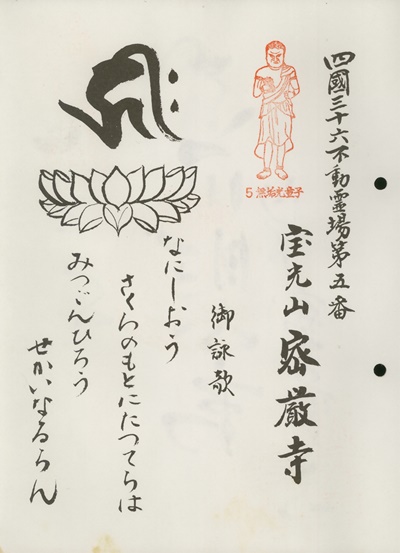 四國三十六不動霊場第五番
5 無垢光童子
宝光山 密厳寺
御詠歌
なにしおう
さくらのもとにたつてらは
みつごんひろう
せかいなるらん